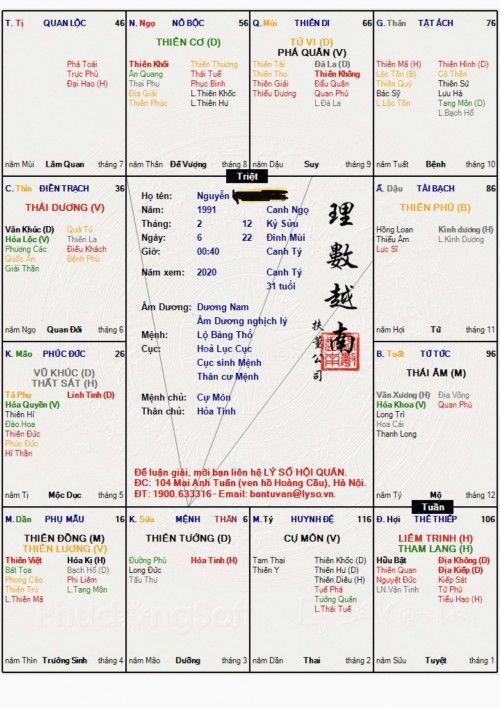 T. Tị QUAN LỘC 46
Phá Toái
Trực Phù
Đại Hao (H)
năm Mùi Lâm Quan tháng 7
N. Ngọ NÔ BỘC 56
THIÊN CƠ (D)
Thiên Khôi Thiên Thương
Ân Quang Thái Tuế
Thai Phụ Phục Binh
Địa Giải L.Thiên Khốc
Thiên Phúc L.Thiên Hư
năm Thân Đế Vượng tháng 8
Q. Mùi THIÊN DI 66
TỬ VI (D)
PHÁ QUÂN (V)
Thiên Tài Đà La (D)
Thiên Thọ Thiên Không
Thiên Giải Đẩu Quân
Thiếu Dương Quan Phủ
L.Đà La
năm Dậu Suy tháng 9
G. Thân TẬT ÁCH 76
Thiên Mã (H) Thiên Hình (D)
Lộc Tồn (B) Cô Thần
Thiên Quý Thiên Sứ
Bác Sỹ Lưu Hà
L.Lộc Tồn Tang Môn (D)
L.Bạch Hổ
năm Tuất Bệnh tháng 10
Triệt
C. Thìn ĐIỀN TRẠCH 36
THÁI DƯƠNG (V)
Văn Khúc (D) Quả Tú
Hóa Lộc (V) Thiên La
Phượng Các Điếu Khách
Quốc Ấn Bệnh Phù
Giải Thần
năm Ngọ Quan Đới tháng 6
Họ tên: Nguyễn
Năm: 1991 Canh Ngọ
Tháng: 2 12 Kỷ Sửu
Ngày: 6 22 Đinh Mùi
Giờ: 00:40 Canh Tý
Năm xem: 2020 Canh Tý
31 tuổi
Âm Dương: Dương Nam
Âm Dương nghịch lý
Mệnh: Lộ Bàng Thổ
Cục: Hoả Lục Cục
Cục sinh Mệnh
Thân cư Mệnh
Mệnh chủ: Cự Môn
Thân chủ: Hỏa Tinh
理數越南
公司
Để luận giải, mời bạn liên hệ LÝ SỐ HỘI QUÁN.
ĐC: 104 Mai Anh Tuấn (ven hồ Hoàng Cầu), Hà Nội.
ĐT: 1900.633316 - Email: bantuvan@lyso.vn.
Ấ. Dậu TÀI BẠCH 86
THIÊN PHỦ (B)
Hồng Loan Kình dương (H)
Thiếu Âm L.Kình Dương
Lực Sĩ
năm Hợi Tử tháng 11
K. Mão PHÚC ĐỨC 26
VŨ KHÚC (D)
THẤT SÁT (H)
Tả Phụ Linh Tinh (D)
Hóa Quyền (V)
Thiên Hỉ
Đào Hoa
Thiên Đức
Phúc Đức
Hỉ Thần
năm Tị Mộc Dục tháng 5
B. Tuất TỬ TỨC 96
THÁI ÂM (M)
Văn Xương (H) Địa Võng
Hóa Khoa (V) Quan Phù
Long Trì
Hoa Cái
Thanh Long
năm Tý Mộ tháng 12
Tuần
M. Dần PHỤ MẪU 16
THIÊN ĐỒNG (M)
THIÊN LƯƠNG (V)
Thiên Việt Hóa Kị (H)
Bát Tọa Bạch Hổ (D)
Phong Cáo Phi Liêm
Thiên Trù L.Tang Môn
L.Thiên Mã
năm Thìn Trường Sinh tháng 4
K. Sửu MỆNH THÂN 6
THIÊN TƯỚNG (D)
Đường Phù Hỏa Tinh (H)
Long Đức
Tấu Thư
năm Mão Dưỡng tháng 3
M. Tý HUYNH ĐỆ 116
CỰ MÔN (V)
Tam Thai Thiên Khốc (D)
Thiên Y Thiên Hư (D)
Thiên Diêu (H)
Tuế Phá
Tướng Quân
L.Thái Tuế
năm Dần Thai tháng 2
Đ. Hợi THÊ THIẾP 106
LIÊM TRINH (H)
THAM LANG (H)
Hữu Bật Địa Không (D)
Thiên Quan Địa Kiếp (D)
Nguyệt Đức Kiếp Sát
LN.Văn Tinh Tử Phù
Tiểu Hao (H)
năm Sửu Tuyệt tháng 1